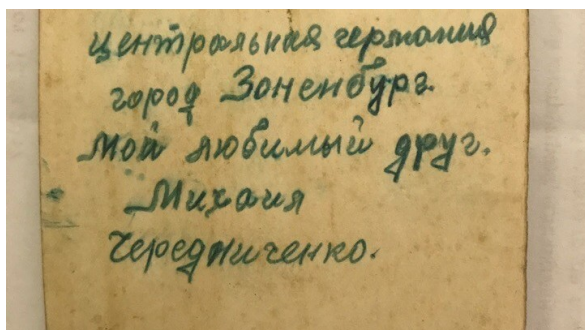 центральная германия
город Зоненбург.
Мой любимый друг.
Михаил
Чередниченко.